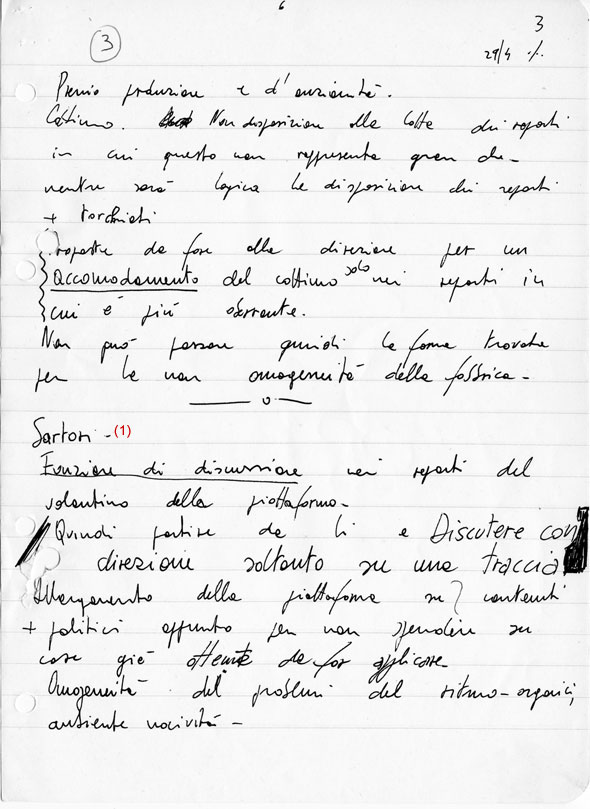 3
3
29/4 ./.
Premio produzione e d'anzianità.
Cottimo. Non disposizione alla lotta dei reparti
in cui questo non rappresenta gran che
mentre sarà logica la disposizione dei reparti
+ torchiati
proposte da fare alla direzione per un
accomodamento del cottimo solo nei reparti in
cui è più aberrante.
Non può passare quindi la forma trovata
per la non omogeneità della fabbrica -
Sartori - (1)
Funzione di discussione nei reparti del
volantino della piattaforma -
Quindi partire da lì e Discutere con
direzione soltanto su una traccia
Allargamento della piattaforma su contenuti
+ politici appunto per non spendere su
cose già ottenute da far applicare
Omogeneità dei problemi del ritmo - organici,
ambiente nocività -